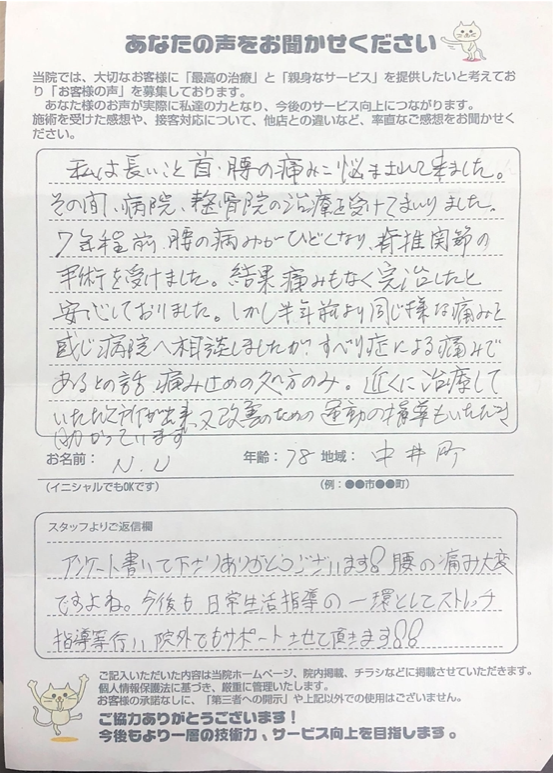 あなたの声をお聞かせください
当院では、大切なお客様に「最高の治療」と「親身なサービス」を提供したいと考えてお
り「お客様の声」を募集しております。
あなた様のお声が実際に私達の力となり、今後のサービス向上につながります。
施術を受けた感想や、接客対応について、他店との違いなど、率直なご感想をお聞かせく
ださい。
私は長いこと首・腰の痛みに悩まされて来ました。
その間、病院、整骨院の治療を受けてまいりました。
7年程前、腰の痛みがひどくなり、脊椎関節の
手術を受けました。結果痛みもなく完治したと
安心しておりました。しかし半年前より同じ様な痛みを
感じ病院へ相談しましたが、すべり症による痛みで
あるとの話、痛み止めの処方のみ。近くに治療して
いただく所が出来、又改善のための運動の指導もいただき
助かっています
お名前： N.U 年齢： 78 地域： 中井町
(イニシャルでもOKです) (例：●●市●●町)
スタッフよりご返信欄
アンケート書いて下さりありがとうございます!! 腰の痛み大変
ですよね。今後も日常生活指導の一環としてストレッチ
指導等行い院外でもサポートさせて頂きます!!
ご記入いただいた内容は当院ホームページ、院内掲載、チラシなどに掲載させていただきます。
個人情報保護法に基づき、厳重に管理いたします。
お客様の承諾なしに、「第三者への開示」や上記以外での使用はございません。
ご協力ありがとうございます！
今後もより一層の技術力、サービス向上を目指します。